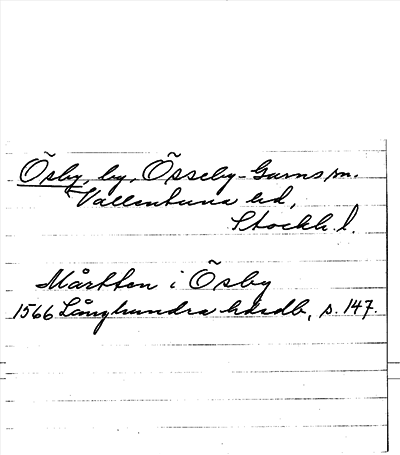 Ösby, by, Össeby-Garns sn.
Vallentuna hd,
Stockh. l.
Mårtten i Ösby
1566 Långhundra hdsdb, s. 147.